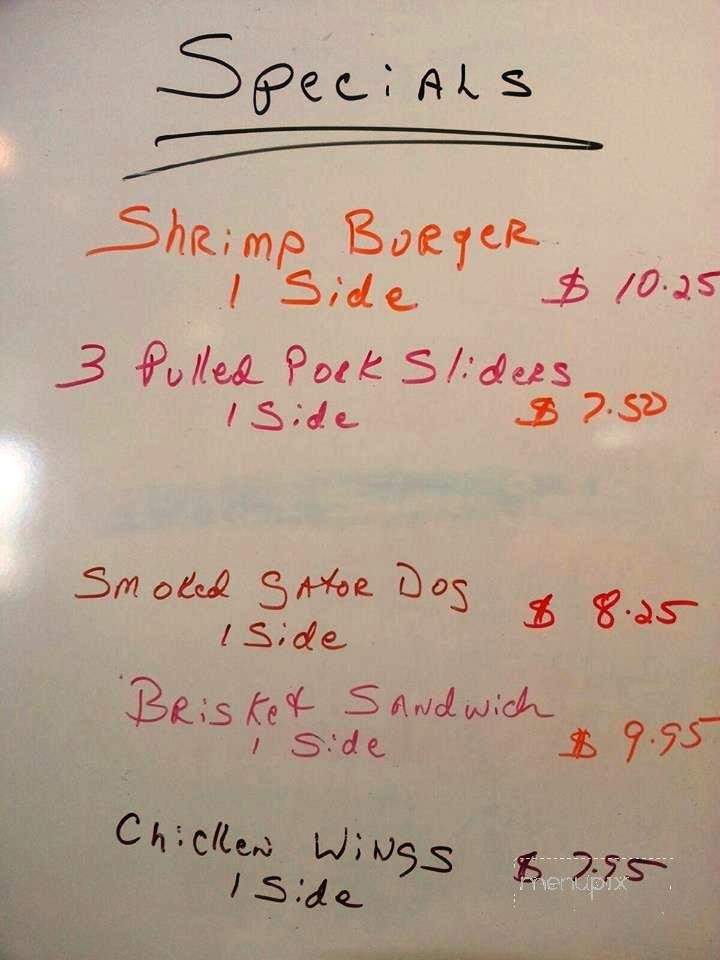 Specials
Shrimp Burger
1 Side $ 10.25
3 Pulled Pork Sliders
1 Side $ 7.50
Smoked Gator Dog
1 Side $ 8.25
Brisket Sandwich
1 Side $ 9.95
Chicken Wings
1 Side $ 7.95
menupix